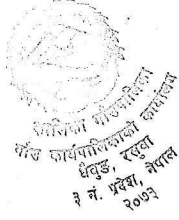 कालिका गाउँपालिका
गाउँ कार्यपालिकाको कार्यालय
धैवुङ, रसुवा
३ नं. प्रदेश, नेपाल
२०७३